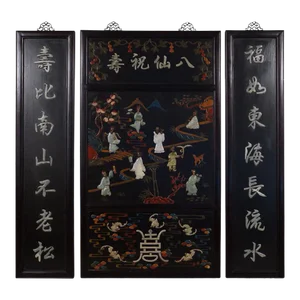 八仙祝壽
福如東海長流水
壽比南山不老松
囍